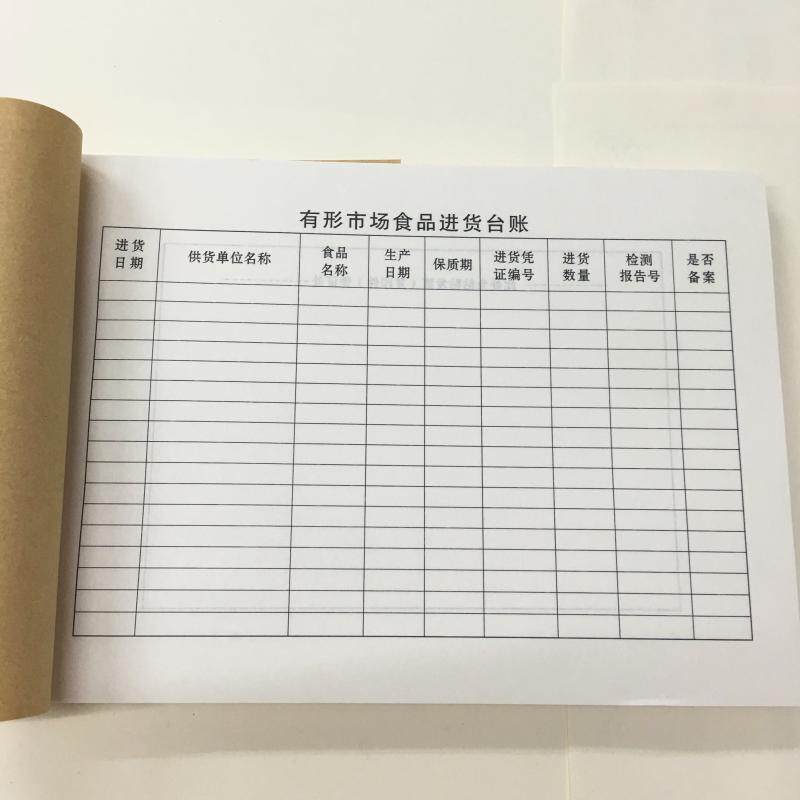 有形市场食品进货台账
进货
日期
供货单位名称
食品
名称
生产
日期
保质期
进货凭
证编号
进货
数量
检测
报告号
是否
备案